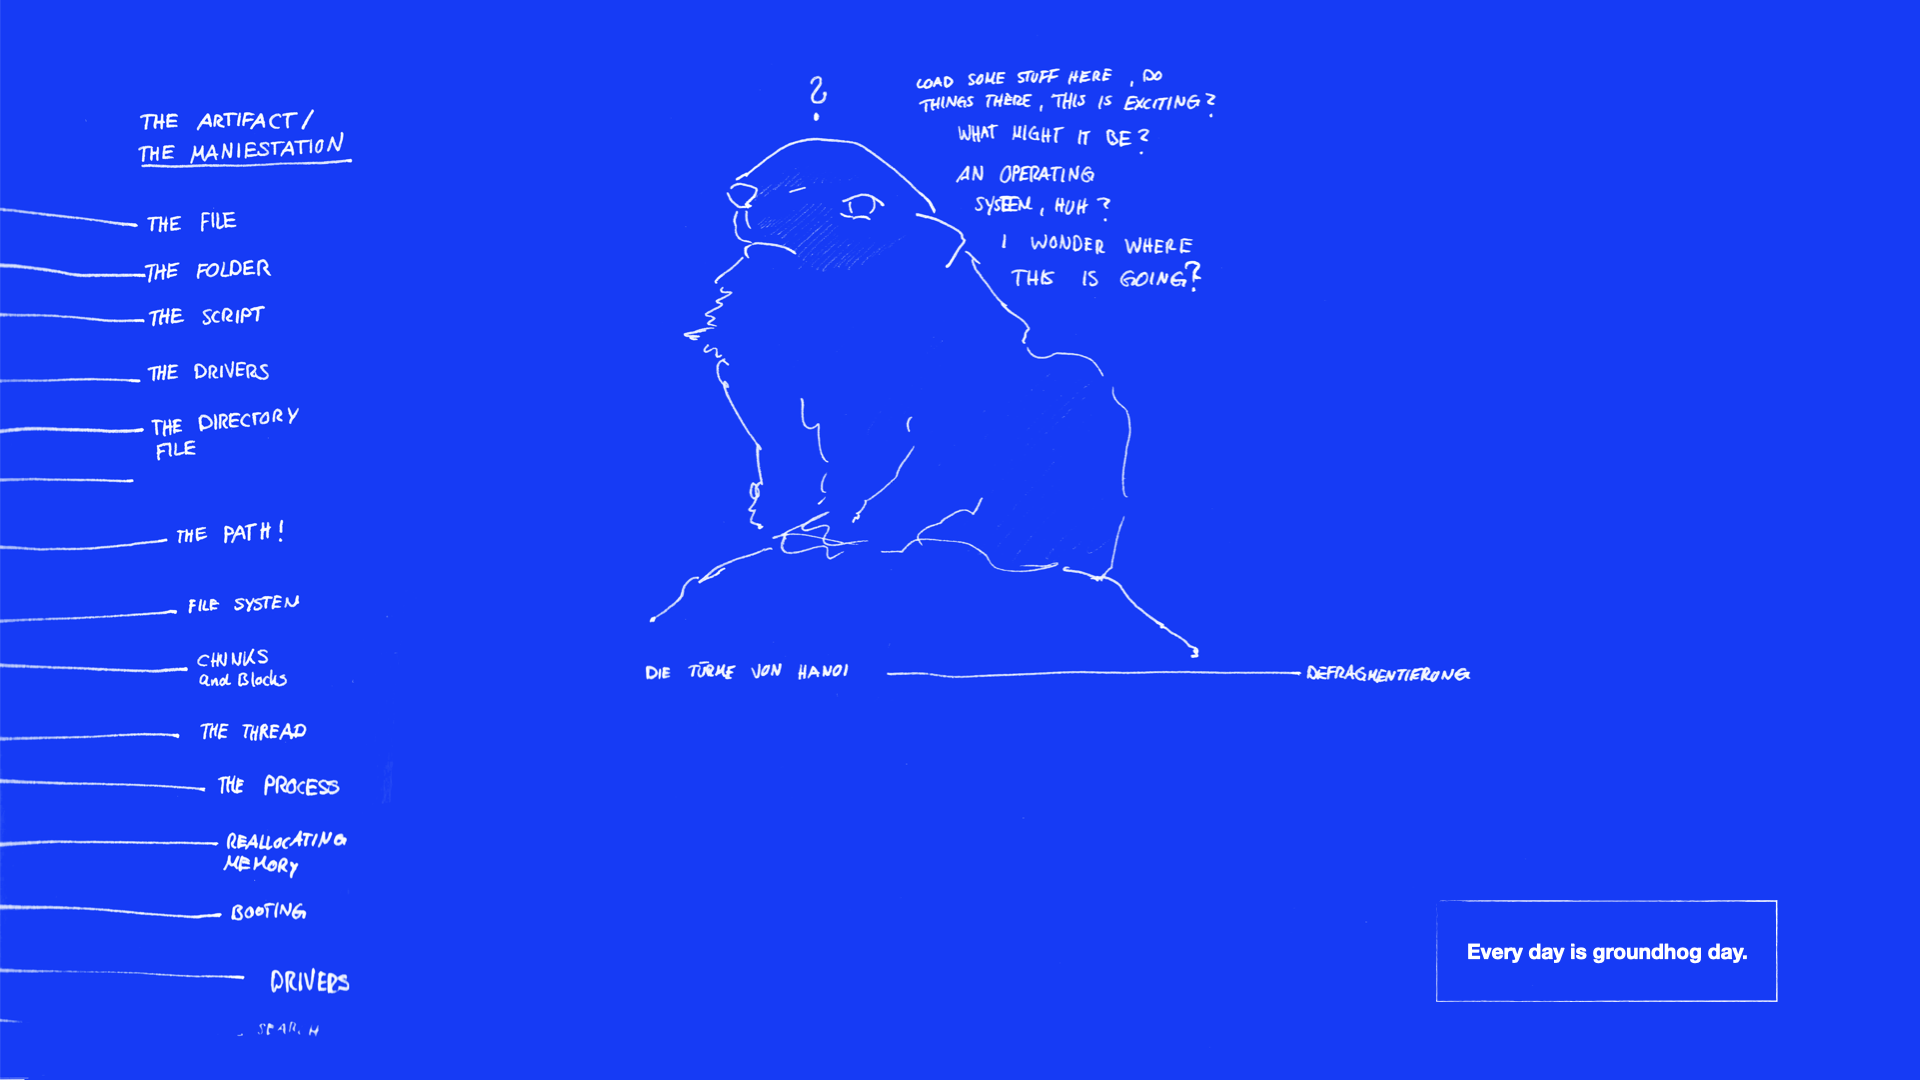 THE ARTIFACT/
THE MANIESTATION
THE FILE
THE FOLDER
THE SCRIPT
THE DRIVERS
THE DIRECTORY
FILE
THE PATH!
FILE SYSTEM
CHUNKS
and Blocks
THE THREAD
THE PROCESS
REALLOCATING
MEMORY
BOOTING
DRIVERS
SEARCH
?
LOAD SOME STUFF HERE, DO
THINGS THERE, THIS IS EXCITING?
WHAT MIGHT IT BE?
AN OPERATING
SYSTEM, HUH?
I WONDER WHERE
THIS IS GOING?
DIE TÜRME VON HANOI
DEFRAGMENTIERUNG
Every day is groundhog day.